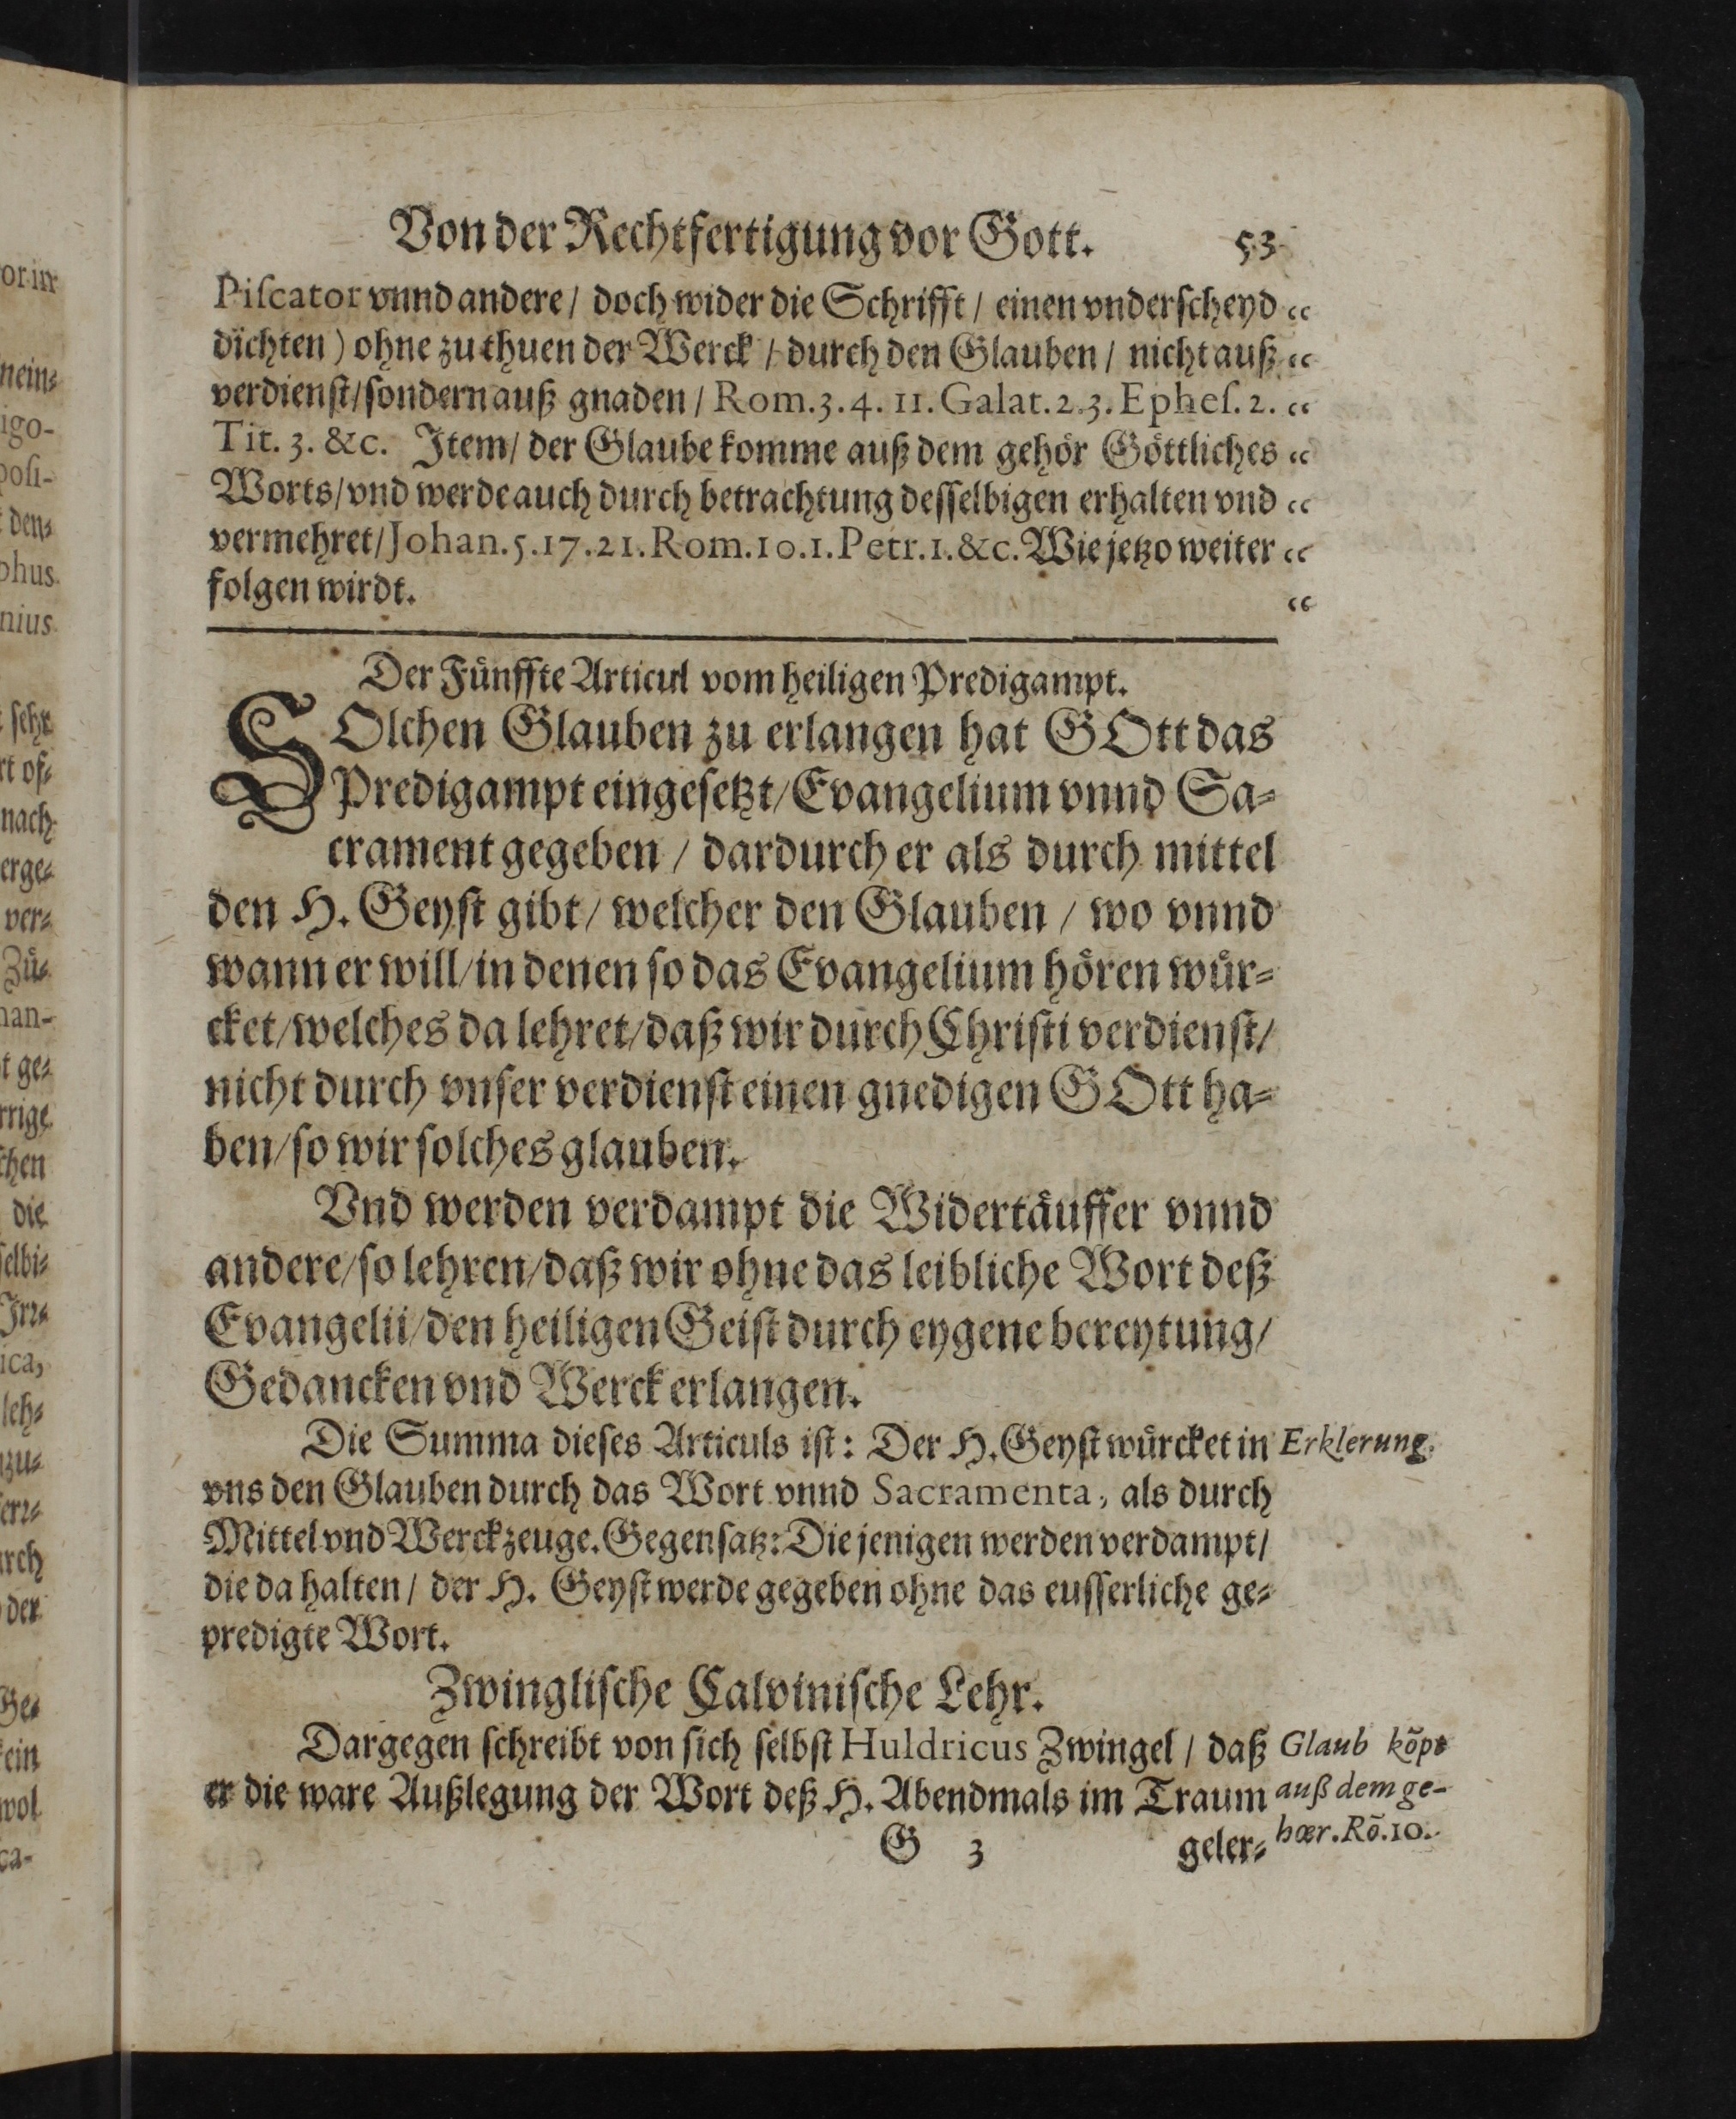 Von der Rechtfertigung vor Gott. 53
Piscator vnnd andere / doch wider die Schrifft / einen vnderscheyd “
dichten) ohne zu thuen der Werck / durch den Glauben / nicht auß “
verdienst/ sondern auß gnaden / Rom. 3. 4. 11. Galat. 2. 3. Ephes. 2. “
Tit. 3. &c. Item / der Glaube komme auß dem gehör Göttliches “
Worts/ vnd werde auch durch betrachtung desselbigen erhalten vnd “
vermehret/ Johan. 5. 17. 21. Rom. 10. 1. Petr. 1. &c. Wie jetzo weiter “
folgen wirdt. “
Der Fünffte Articul vom heiligen Predigampt.
SOlchen Glauben zu erlangen hat GOtt das
Predigampt eingesetzt/ Evangelium vnnd Sa-
crament gegeben / dardurch er als durch mittel
den H. Geyst gibt / welcher den Glauben / wo vnnd
wann er will/ in denen so das Evangelium hören wür-
cket/ welches da lehret/ daß wir durch Christi verdienst/
nicht durch vnser verdienst einen gnedigen GOtt ha-
ben/ so wir solches glauben.
Vnd werden verdampt die Widertäuffer vnnd
andere/ so lehren/ daß wir ohne das leibliche Wort deß
Evangelii/ den heiligen Geist durch eygene bereytung/
Gedancken vnd Werck erlangen.
Die Summa dieses Articuls ist: Der H. Geyst würcket in Erklerung.
vns den Glauben durch das Wort vnnd Sacramenta, als durch
Mittel vnd Werckzeuge. Gegensatz: Die jenigen werden verdampt/
die da halten / der H. Geyst werde gegeben ohne das eusserliche ge-
predigte Wort.
Zwinglische Calvinische Lehr.
Dargegen schreibt von sich selbst Huldricus Zwingel / daß Glaub kõpt
er die ware Außlegung der Wort deß H. Abendmals im Traum auß dem ge-
G 3 geler- hœr. Rõ. 10.